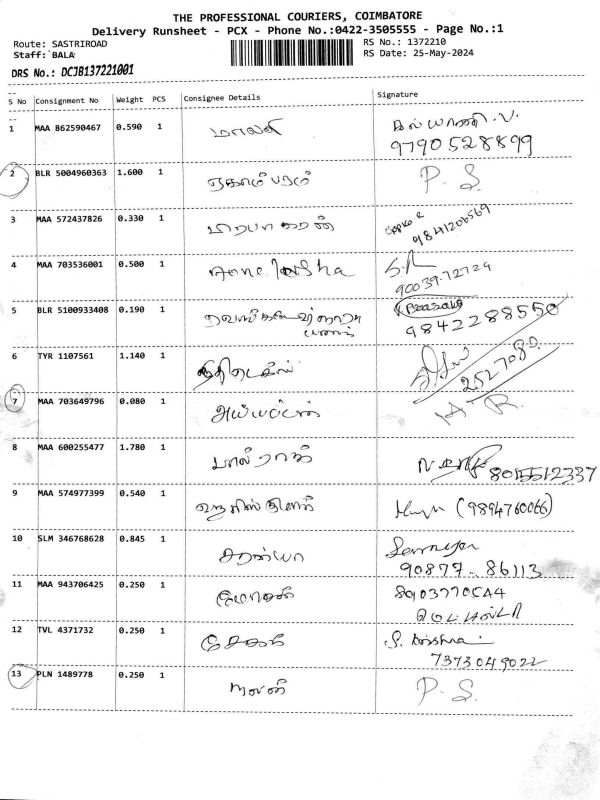 THE PROFESSIONAL COURIERS, COIMBATORE
Delivery Runsheet - PCX - Phone No.:0422-3505555 - Page No.:1
Route: SASTRIROAD RS No.: 1372210
Staff: BALA RS Date: 25-May-2024
DRS No.: DCJB137221001
S No Consignment No Weight PCS Consignee Details Signature
1 MAA 862590467 0.590 1 மாலதி கல்யாணி.V.
9790528899
2 BLR 5004960363 1.600 1 ஏகாம்பரம் P. S.
3 MAA 572437826 0.330 1 பிரபாகரன்
9841206569
4 MAA 703536001 0.500 1 S.R
90039-72724
5 BLR 5100933408 0.190 1
9842288550
6 TYR 1107561 1.140 1
2527080
7 MAA 703649796 0.080 1 அய்யப்பன் A. R.
8 MAA 600255477 1.780 1 பால்ராஜ்
9 MAA 574977399 0.540 1 (9894760066)
10 SLM 346768628 0.845 1 சரண்யா
90879-86113
11 MAA 943706425 0.250 1 மோகன்
12 TVL 4371732 0.250 1 சேகர்
7373049022
13 PLN 1489778 0.250 1 P. S.